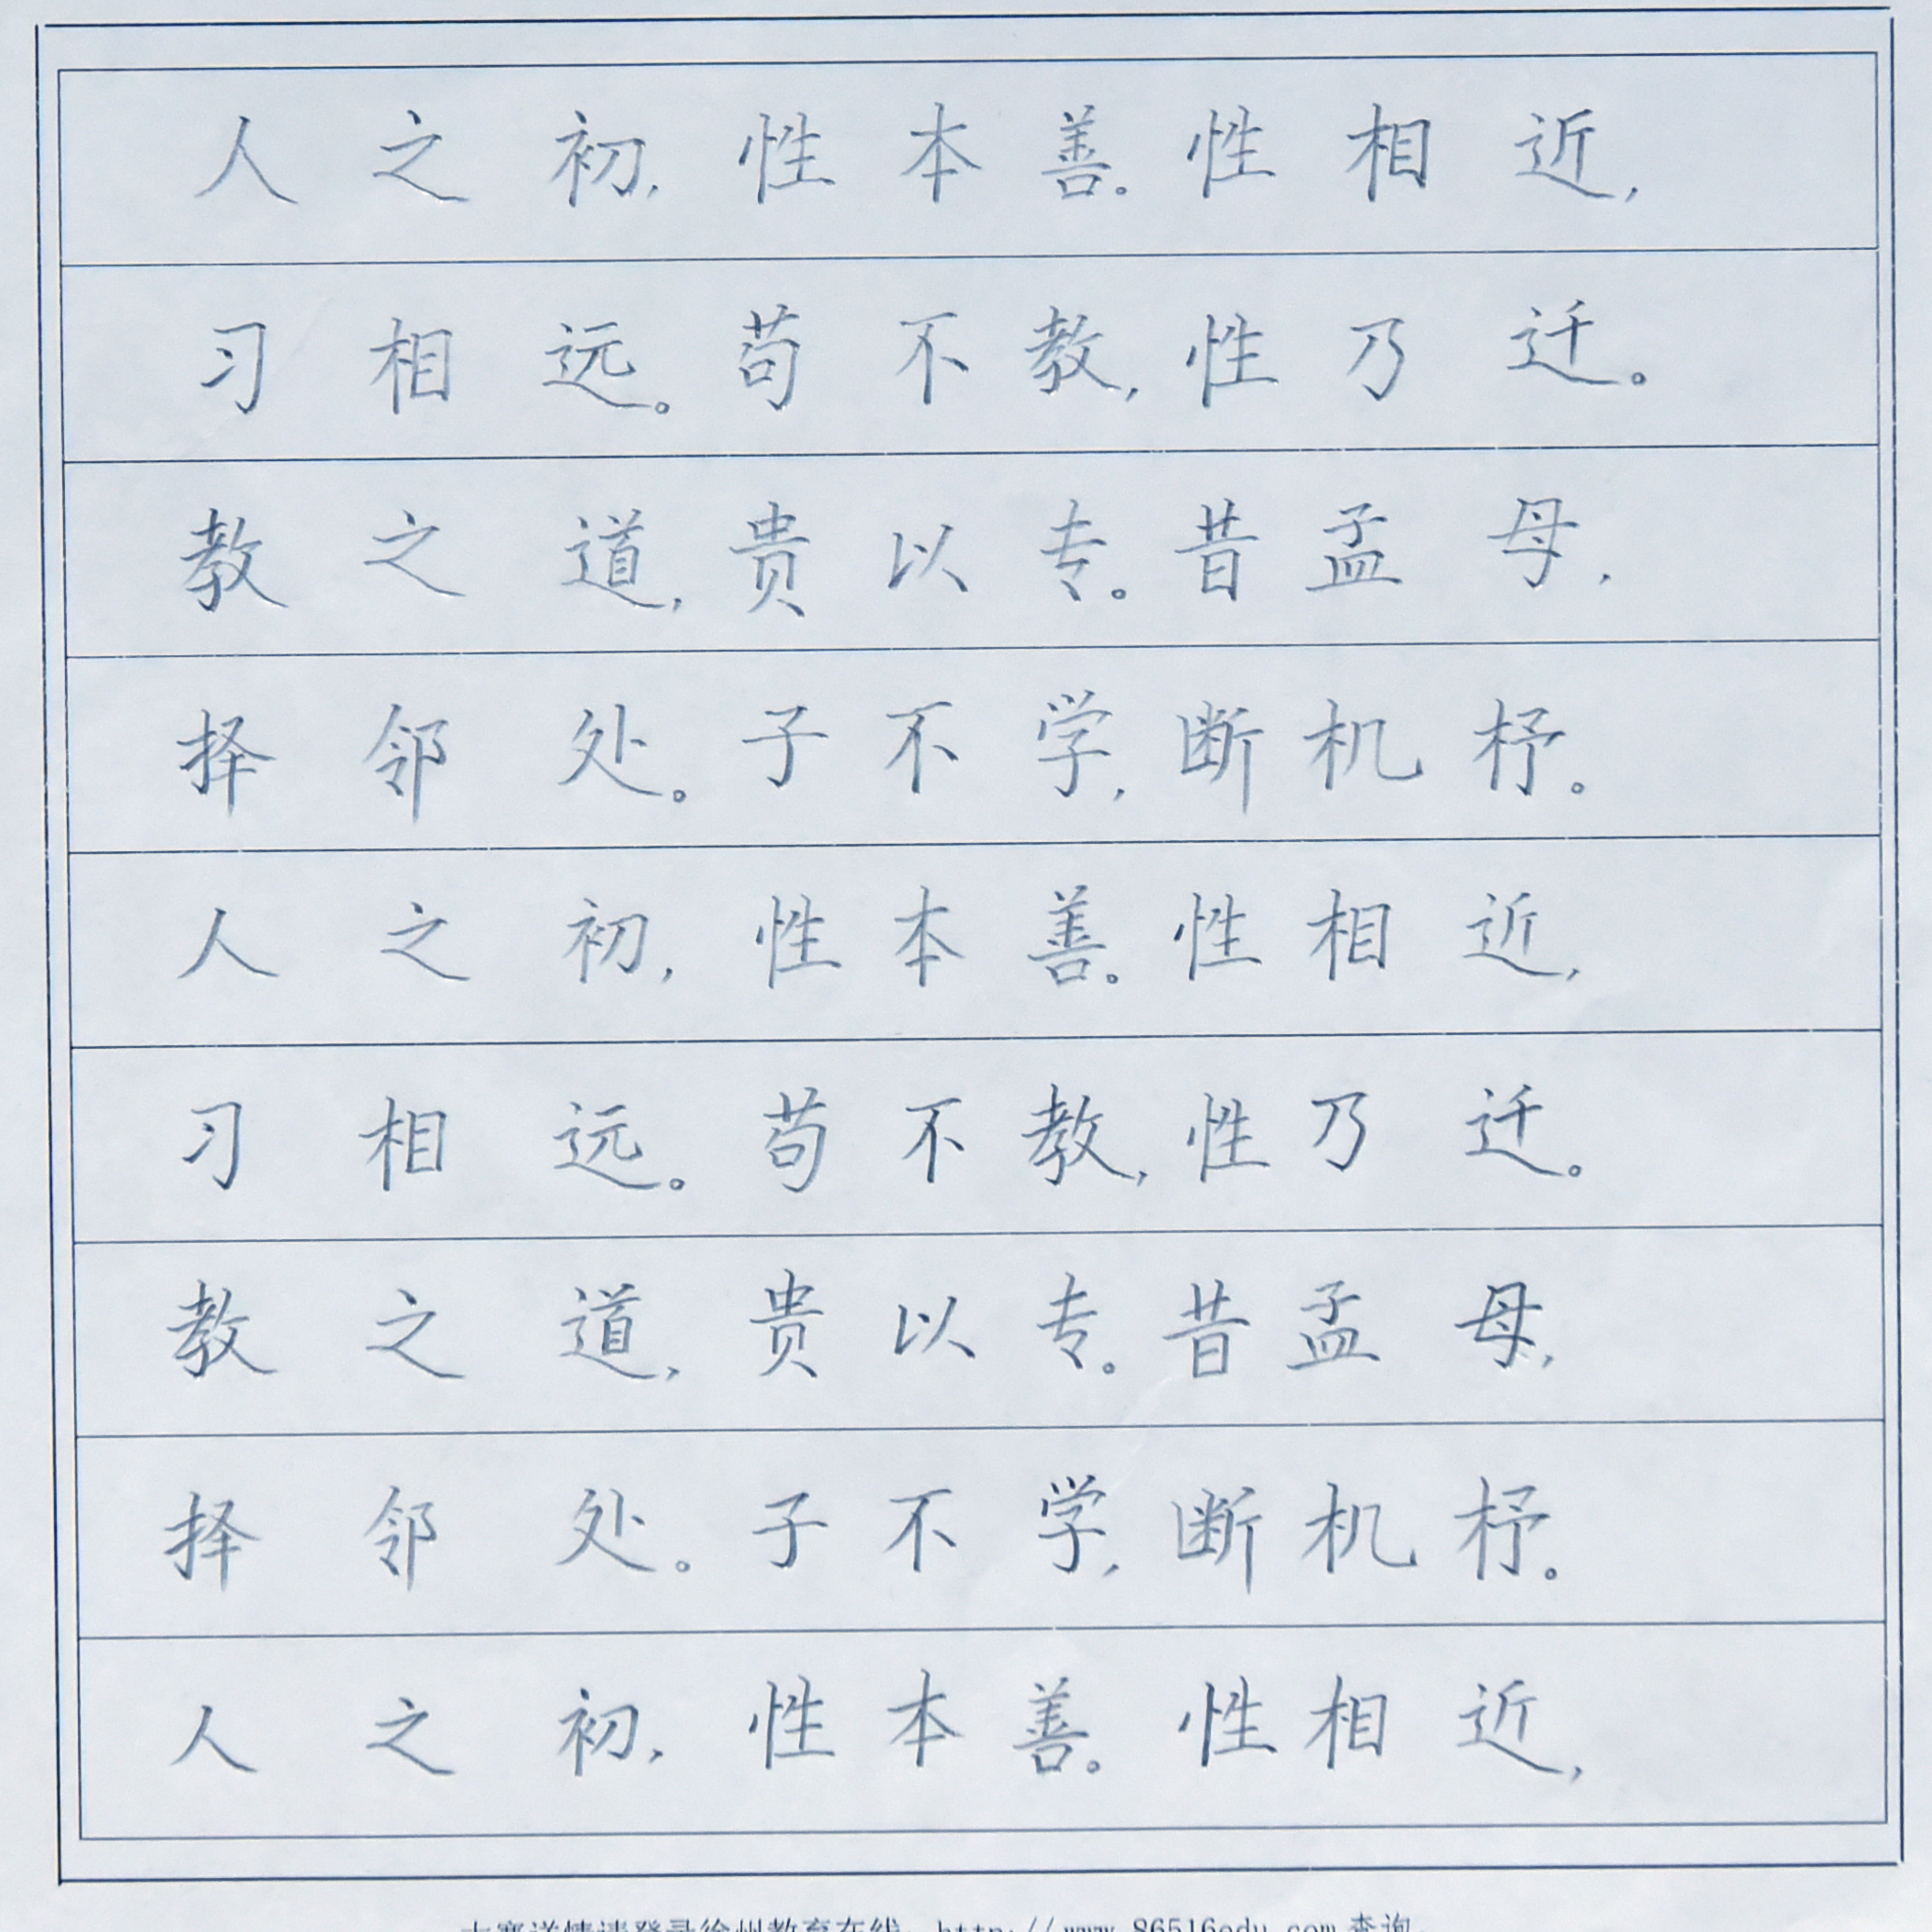 人之初,性本善。性相近,
习相远。苟不教,性乃迁。
教之道,贵以专。昔孟母,
择邻处。子不学,断机杼。
人之初,性本善。性相近,
习相远。苟不教,性乃迁。
教之道,贵以专。昔孟母,
择邻处。子不学,断机杼。
人之初,性本善。性相近,
大赛详情请登录徐州教育在线: http://www.86516edu.com 查询.